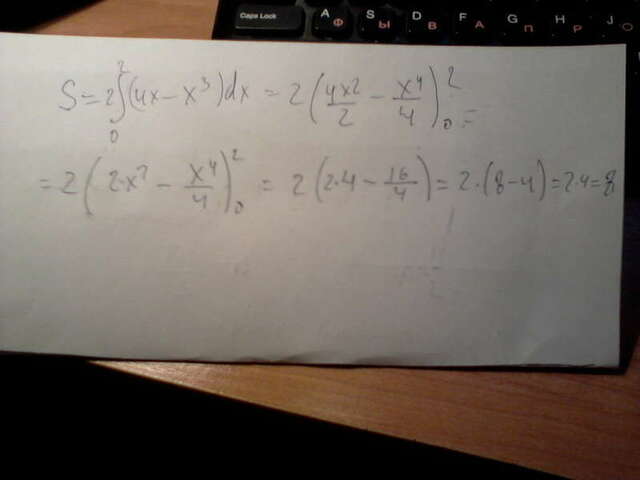 Caps Lock A Ф S Ы D В F А G П H Р J О
S = 2∫₀²(4x − x³)dx = 2(4x2/2 − x⁴/4)₀² =
= 2(2·x² − x⁴/4)₀² = 2(2·4 − 16/4) = 2·(8−4) = 2·4 = 8